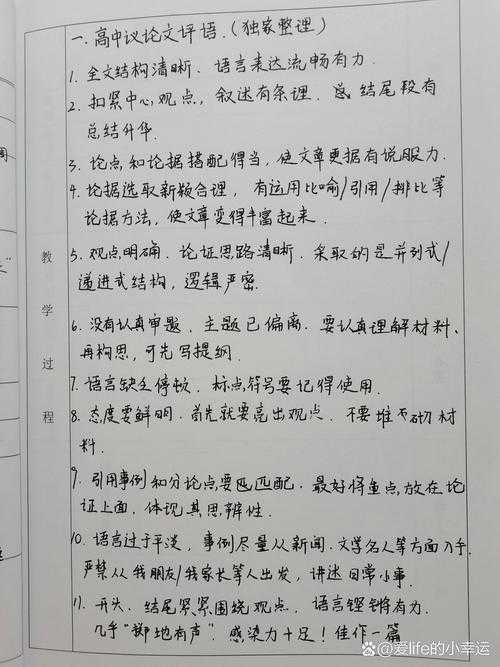 一、高中议论文评语.(独家整理)
1. 全文结构清晰、语言表达流畅有力.
2. 扣紧中心观点,叙述有条理. 结尾段有
总结升华.
3. 论点和论据搭配得当,使文章更据有说服力.
4. 论据选取新颖合理,有运用比喻/引用/排比等
论据方法,使文章变得丰富起来.
5. 观点明确、论证思路清晰、采取的是并列式/
递进式结构,逻辑严密.
6. 没有认真审题、主题已偏离、要认真理解材料、
再构思,可先写提纲.
7. 语言缺乏停顿、标点符号要记得使用.
8. 态度要鲜明、首先就要亮出观点、不要堆砌材
料.
9. 引用事例和分论点要匹配、最好将重点放在论
证上面、体现其思辨性.
10. 语言过于平淡,事例尽量从新闻、文学名人等方面入手、
严禁从我朋友/我家长等人出发,讲述日常小事.
11. 开头、结尾紧紧围绕观点、语言铿锵有力.
几乎“掷地有声”.感染力十足!佳作一篇
教
学
过
程
@爱life的小幸运